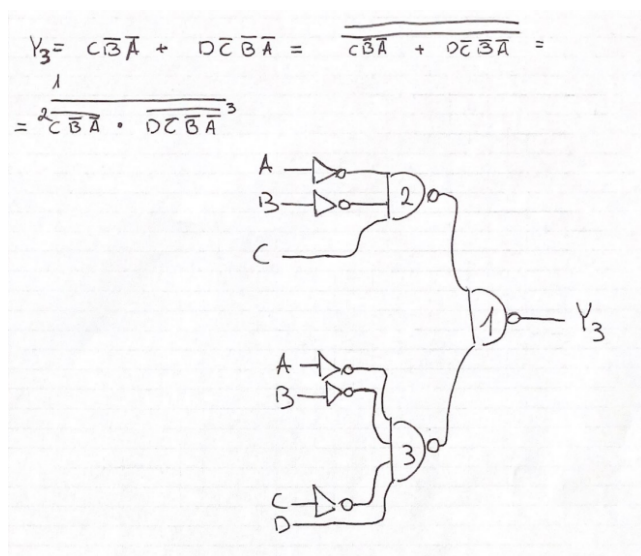 Y₃ = CB̅A̅ + DC̅B̅A̅ = C̅B̅̅A̅̅ ̅+̅ ̅D̅C̅̅B̅̅A̅̅ =
1
= ² C̅B̅̅A̅̅ · D̅C̅̅B̅̅A̅̅ ³
A
B
2
C
1
Y₃
A
B
3
C
D